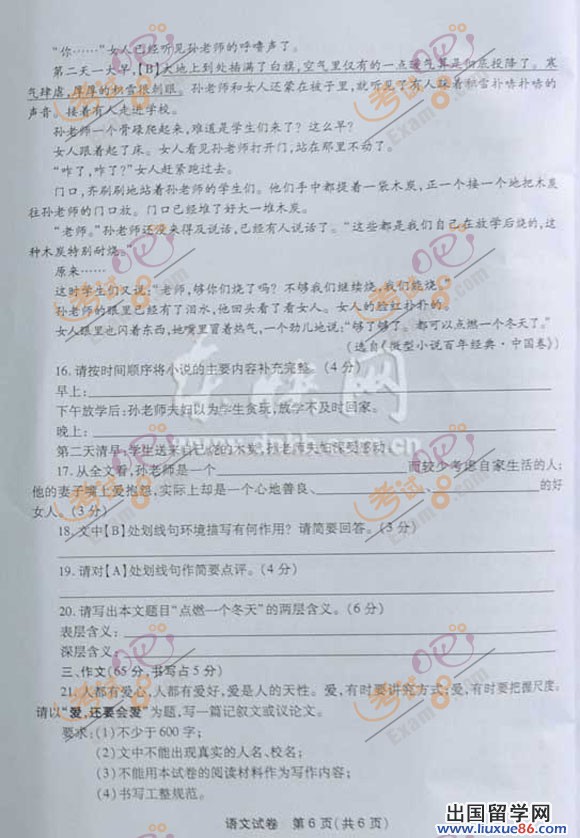 “你……”女人已经听见孙老师的呼噜声了。
第二天一大早,【B】大地上到处插满了白旗,空气里仅有的一点暖气算是彻底投降了。寒
气肆虐,厚厚的积雪很刺眼。孙老师和女人还蒙在被子里,就听见了有人踩着积雪扑哧扑哧的
声音。接着有人走进学校。
孙老师一个骨碌爬起来,难道是学生们来了?这么早?
女人跟着起了床。女人看见孙老师打开门,站在那里不动了。
“咋了,咋了?”女人赶紧跑过去。
门口,齐刷刷地站着孙老师的学生们。他们手中都提着一袋木炭,正一个接一个地把木炭
往孙老师的门口放。门口已经堆了好大一堆木炭。
“老师。”孙老师还没来得及说话,已经有人说话了。“这些都是我们自己在放学后烧的,这
种木炭特别耐烧。”
原来……
这时学生们又说:“老师,够你们烧了吗?不够我们继续烧,我们能烧。”
孙老师的眼里已经有了泪水,他回头看了看女人。女人的脸红扑扑的。
女人眼里也闪着东西,她嘴里冒着热气,一个劲儿地说:“够了够了。都可以点燃一个冬天了。”
(选自《微型小说百年经典·中国卷》)
16.请按时间顺序将小说的主要内容补充完整。(4分)
早上:
下午放学后:孙老师夫妇以为学生贪玩,放学不及时回家。
晚上:
第二天清早:学生送来自己烧的木炭,孙老师夫妇深受感动。
17.从全文看,孙老师是一个 而较少考虑自家生活的人;
他的妻子嘴上爱抱怨,实际上却是一个心地善良、 、 的好
女人。(3分)
18.文中【B】处划线句环境描写有何作用?请简要回答。(3分)
19.请对【A】处划线句作简要点评。(4分)
20.请写出本文题目“点燃一个冬天”的两层含义。(6分)
表层含义:
深层含义:
三、作文(65分,书写占5分)
21.人都有爱心,人都有爱好,爱是人的天性。爱,有时要讲究方式;爱,有时要把握尺度。
请以“爱,还要会爱”为题,写一篇记叙文或议论文。
要求:(1)不少于600字;
(2)文中不能出现真实的人名、校名;
(3)不能用本试卷的阅读材料作为写作内容;
(4)书写工整规范。
语文试卷 第6页(共6页)
出国留学网
www.liuxue86.com